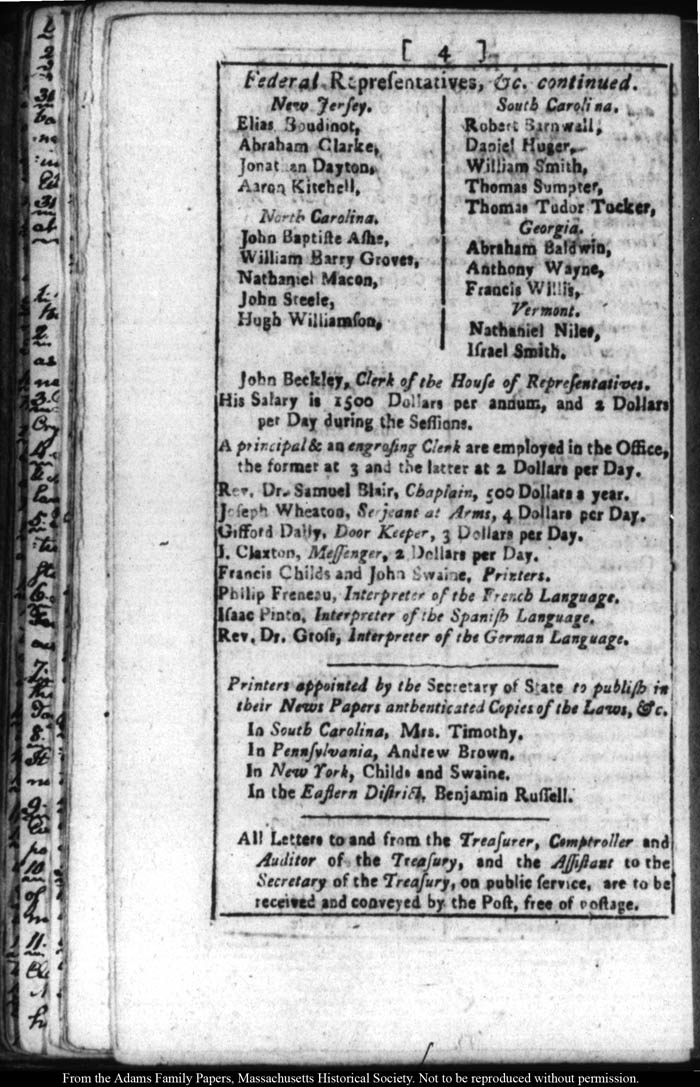 [ 4 ]
Federal Repreſentatives, &c. continued.
New Jerſey.
Elias Boudinot,
Abraham Clarke,
Jonathan Dayton,
Aaron Kitchell,
North Carolina.
John Baptiſte Aſhe,
William Barry Groves,
Nathaniel Macon,
John Steele,
Hugh Williamſon,
South Carolina.
Robert Barnwell,
Daniel Huger,
William Smith,
Thomas Sumpter,
Thomas Tudor Tucker,
Georgia.
Abraham Baldwin,
Anthony Wayne,
Francis Willis,
Vermont.
Nathaniel Niles,
Iſrael Smith.
John Beckley, Clerk of the Houſe of Repreſentatives.
His Salary is 1500 Dollars per annum, and 2 Dollars
per Day during the Seſſions.
A principal & an engroſing Clerk are employed in the Office,
the former at 3 and the latter at 2 Dollars per Day.
Rev. Dr. Samuel Blair, Chaplain, 500 Dollars a year.
Joſeph Wheaton, Serjeant at Arms, 4 Dollars per Day.
Gifford Dally, Door Keeper, 3 Dollars per Day.
J. Claxton, Meſſenger, 2 Dollars per Day.
Francis Childs and John Swaine, Printers.
Philip Freneau, Interpreter of the French Language.
Iſaac Pinto, Interpreter of the Spaniſh Language.
Rev. Dr. Groſs, Interpreter of the German Language.
Printers appointed by the Secretary of State to publiſh in
their News Papers authenticated Copies of the Laws, &c.
In South Carolina, Mrs. Timothy.
In Pennſylvania, Andrew Brown.
In New York, Childs and Swaine.
In the Eaſtern Diſtrict, Benjamin Ruſſell.
All Letters to and from the Treaſurer, Comptroller and
Auditor of the Treaſury, and the Aſſiſtant to the
Secretary of the Treaſury, on public ſervice, are to be
received and conveyed by the Poſt, free of poſtage.
31
1.
2.
as
3.
4.
5.
6.
7.
8.
9.
10.
of
11.
From the Adams Family Papers, Massachusetts Historical Society. Not to be reproduced without permission.